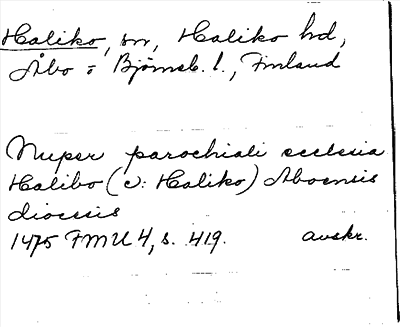 Haliko, sn, Haliko hd,
Åbo = Björneb. l., Finland
Nuper parochiali ecclesia
Halibo (ɔ: Haliko) Aboensis
diocesis
1475 FMU 4, s. 419. avskr.